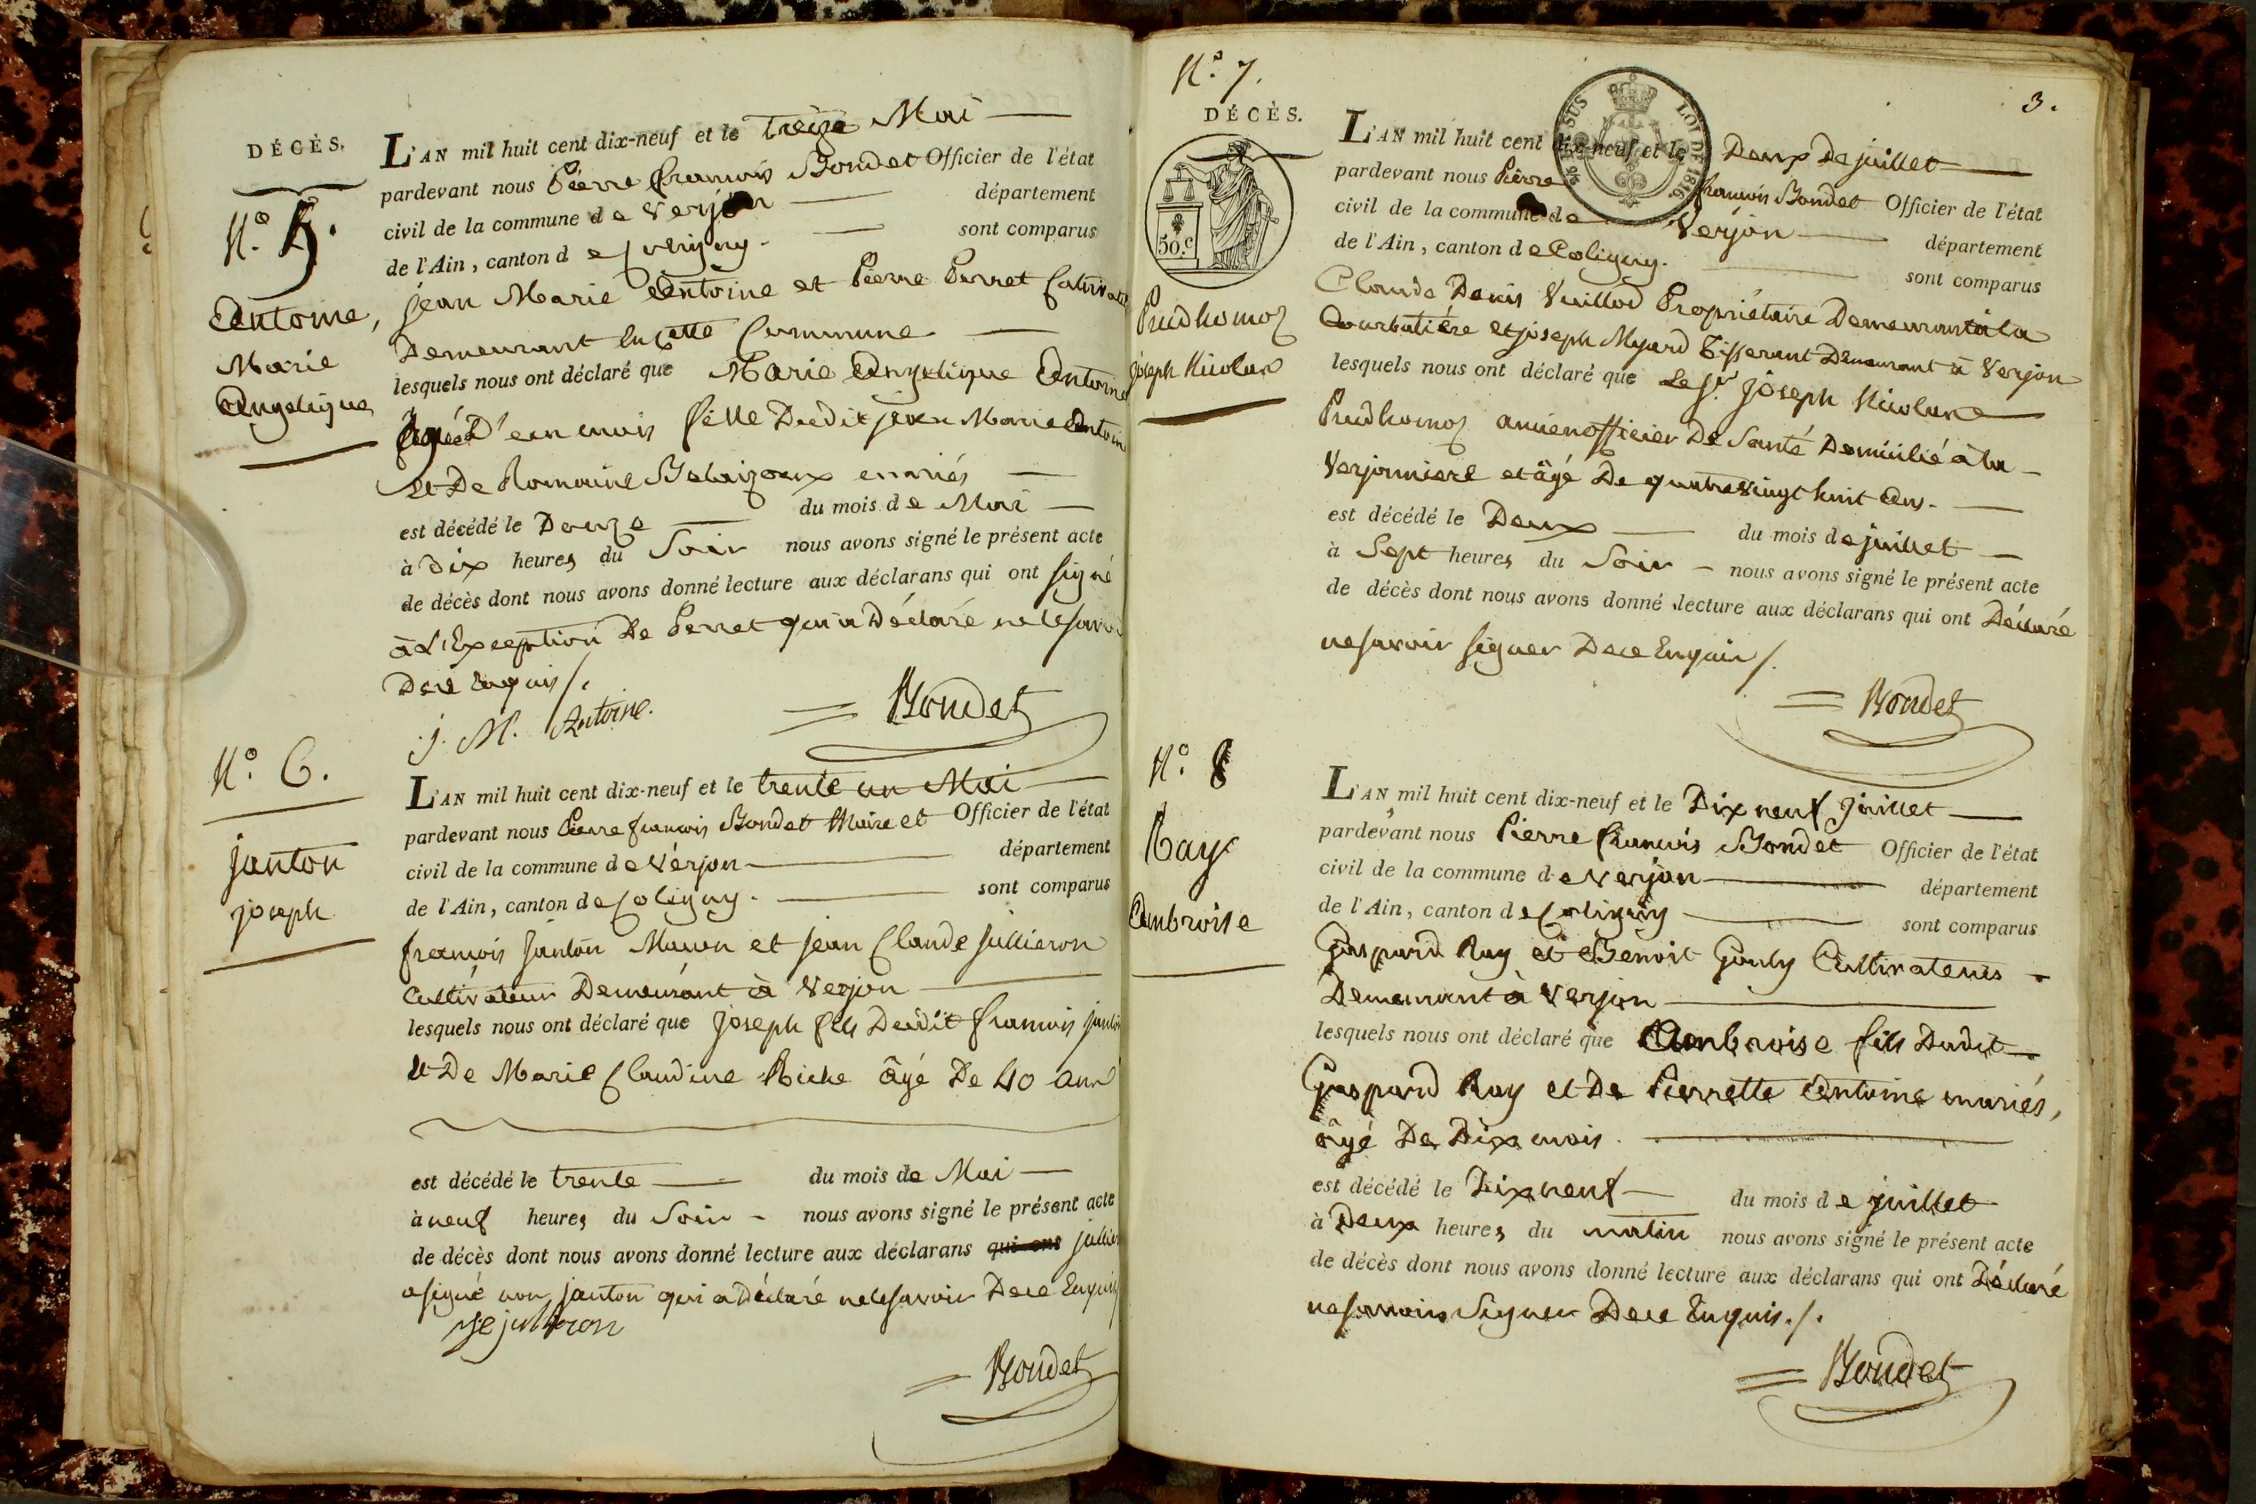 DÉCÈS.
N.° 5.
Antoine,
Marie
Angelique
L'AN mil huit cent dix-neuf et le treize Mai
pardevant nous Pierre françois Bondet Officier de l'état
civil de la commune de Verjon département
de l'Ain, canton de Coligny. sont comparus
jean Marie Antoine et Pierre Perret
Demeurant En Cette Commune
lesquels nous ont déclaré que Marie Angelique Antoine
D'un mois fille Dudit jean Marie Antoine
Et De Romaine mariés
est décédé le Douze du mois de Mai
à Dix heures du Soir nous avons signé le présent acte
de décès dont nous avons donné lecture aux déclarans qui ont signé
à L'Exception De Perret qui a Déclaré ne le savoir
De ce Enquis /.
J. M. Antoine.
Bondet
N.° 6.
janton
joseph
L'AN mil huit cent dix-neuf et le trente un Mai
pardevant nous Pierre françois Bondet Maire et Officier de l'état
civil de la commune de Verjon département
de l'Ain, canton de Coligny. sont comparus
françois janton Maçon et jean Claude jullieron
Cultivateur Demeurant à Verjon
lesquels nous ont déclaré que joseph fils Dudit françois janton
Et De Marie Claudine Riche âgé De 40 ans
est décédé le trente du mois de Mai
à neuf heures du Soir nous avons signé le présent acte
de décès dont nous avons donné lecture aux déclarans qui ont
a signé non janton qui a Déclaré ne le savoir De ce Enquis
jullieron
Bondet
N.° 7.
3.
DÉCÈS.
50.c
LOI DE 1816.
Prudhomoz
joseph Nicolas
L'AN mil huit cent dix-neuf et le Deux De juillet
pardevant nous Pierre françois Bondet Officier de l'état
civil de la commune de Verjon département
de l'Ain, canton de Coligny. sont comparus
Claude Denis Vuillod Propriétaire Demeurant à la
Courbatière et joseph Myard Tisserant Demeurant à Verjon
lesquels nous ont déclaré que Le Sr. joseph Nicolas
Prudhomoz ancien officier De Santé Domicilié à la
Verjonniere et âgé De quatrevingt huit Ans.
est décédé le Deux du mois de juillet
à Sept heures du Soir nous avons signé le présent acte
de décès dont nous avons donné lecture aux déclarans qui ont Déclaré
ne savoir signer De ce Enquis /.
Bondet
N.° 8
Ray
Ambroise
L'AN mil huit cent dix-neuf et le Dix neuf juillet
pardevant nous Pierre françois Bondet Officier de l'état
civil de la commune de Verjon département
de l'Ain, canton de Coligny sont comparus
Gaspard Ray et Benoit Gouly Cultivateurs
Demeurant à Verjon
lesquels nous ont déclaré que Ambroise fils Dudit
Gaspard Ray et De Pierrette Antoine mariés,
âgé De Dix mois.
est décédé le Dix neuf du mois de juillet
à Deux heures du matin nous avons signé le présent acte
de décès dont nous avons donné lecture aux déclarans qui ont Déclaré
ne savoir Signer De ce Enquis. /.
Bondet